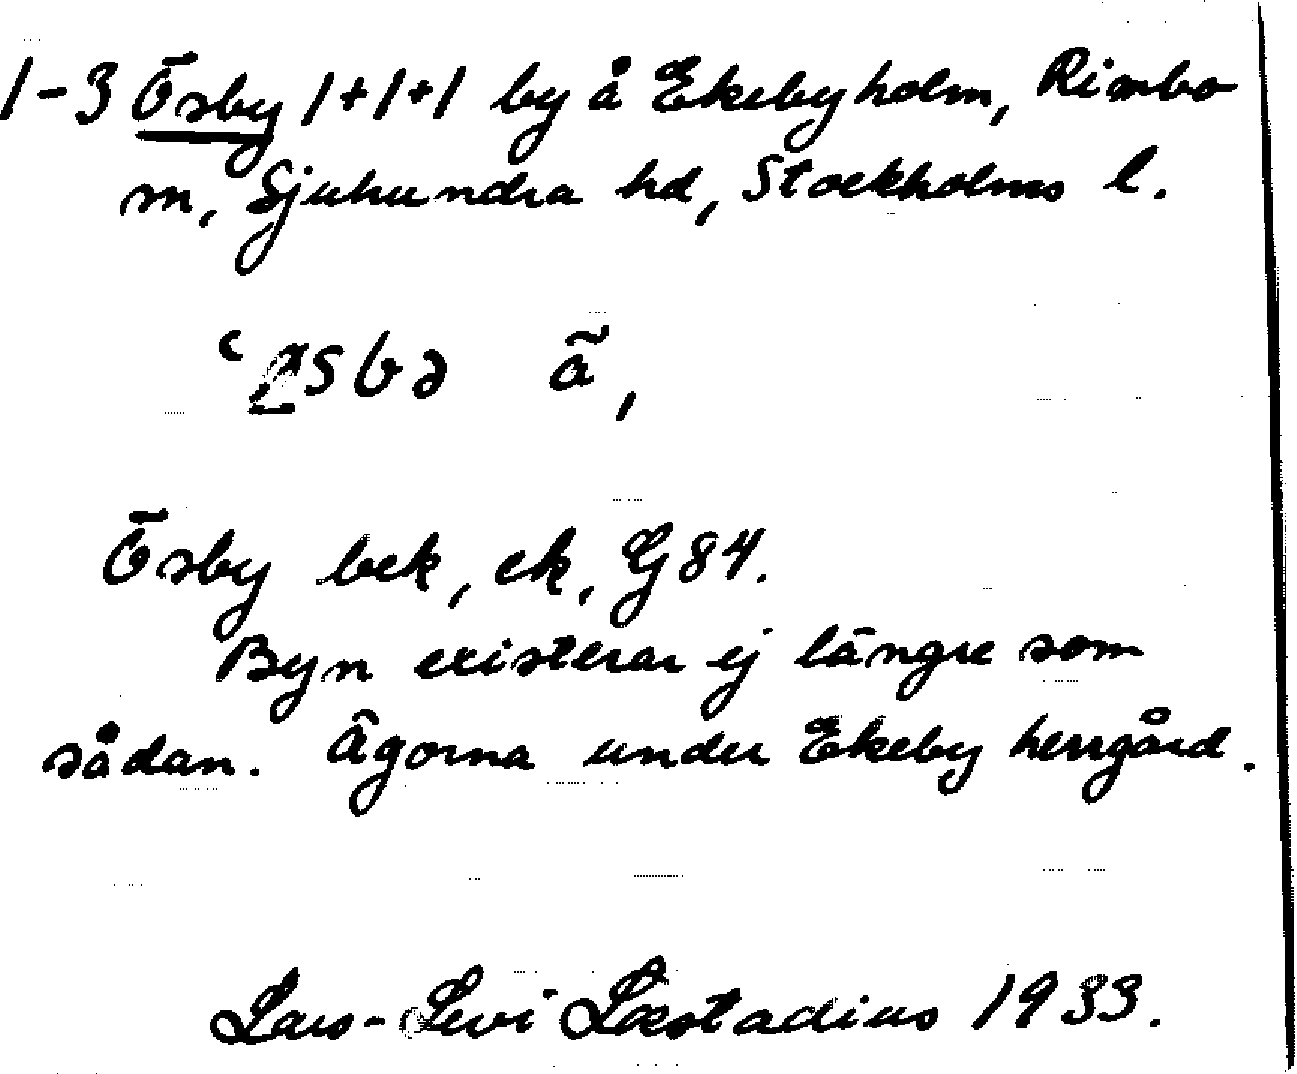 1-3 Ösby 1+1+1 by å Ekebyholm, Rimbo
m, Sjuhundra hd, Stockholms l.
å,
Ösby bek, ek, G 84.
Byn existerar ej längre som
sådan. Ägorna under Ekeby herrgård.
Lars-Levi Læstadius 1933.